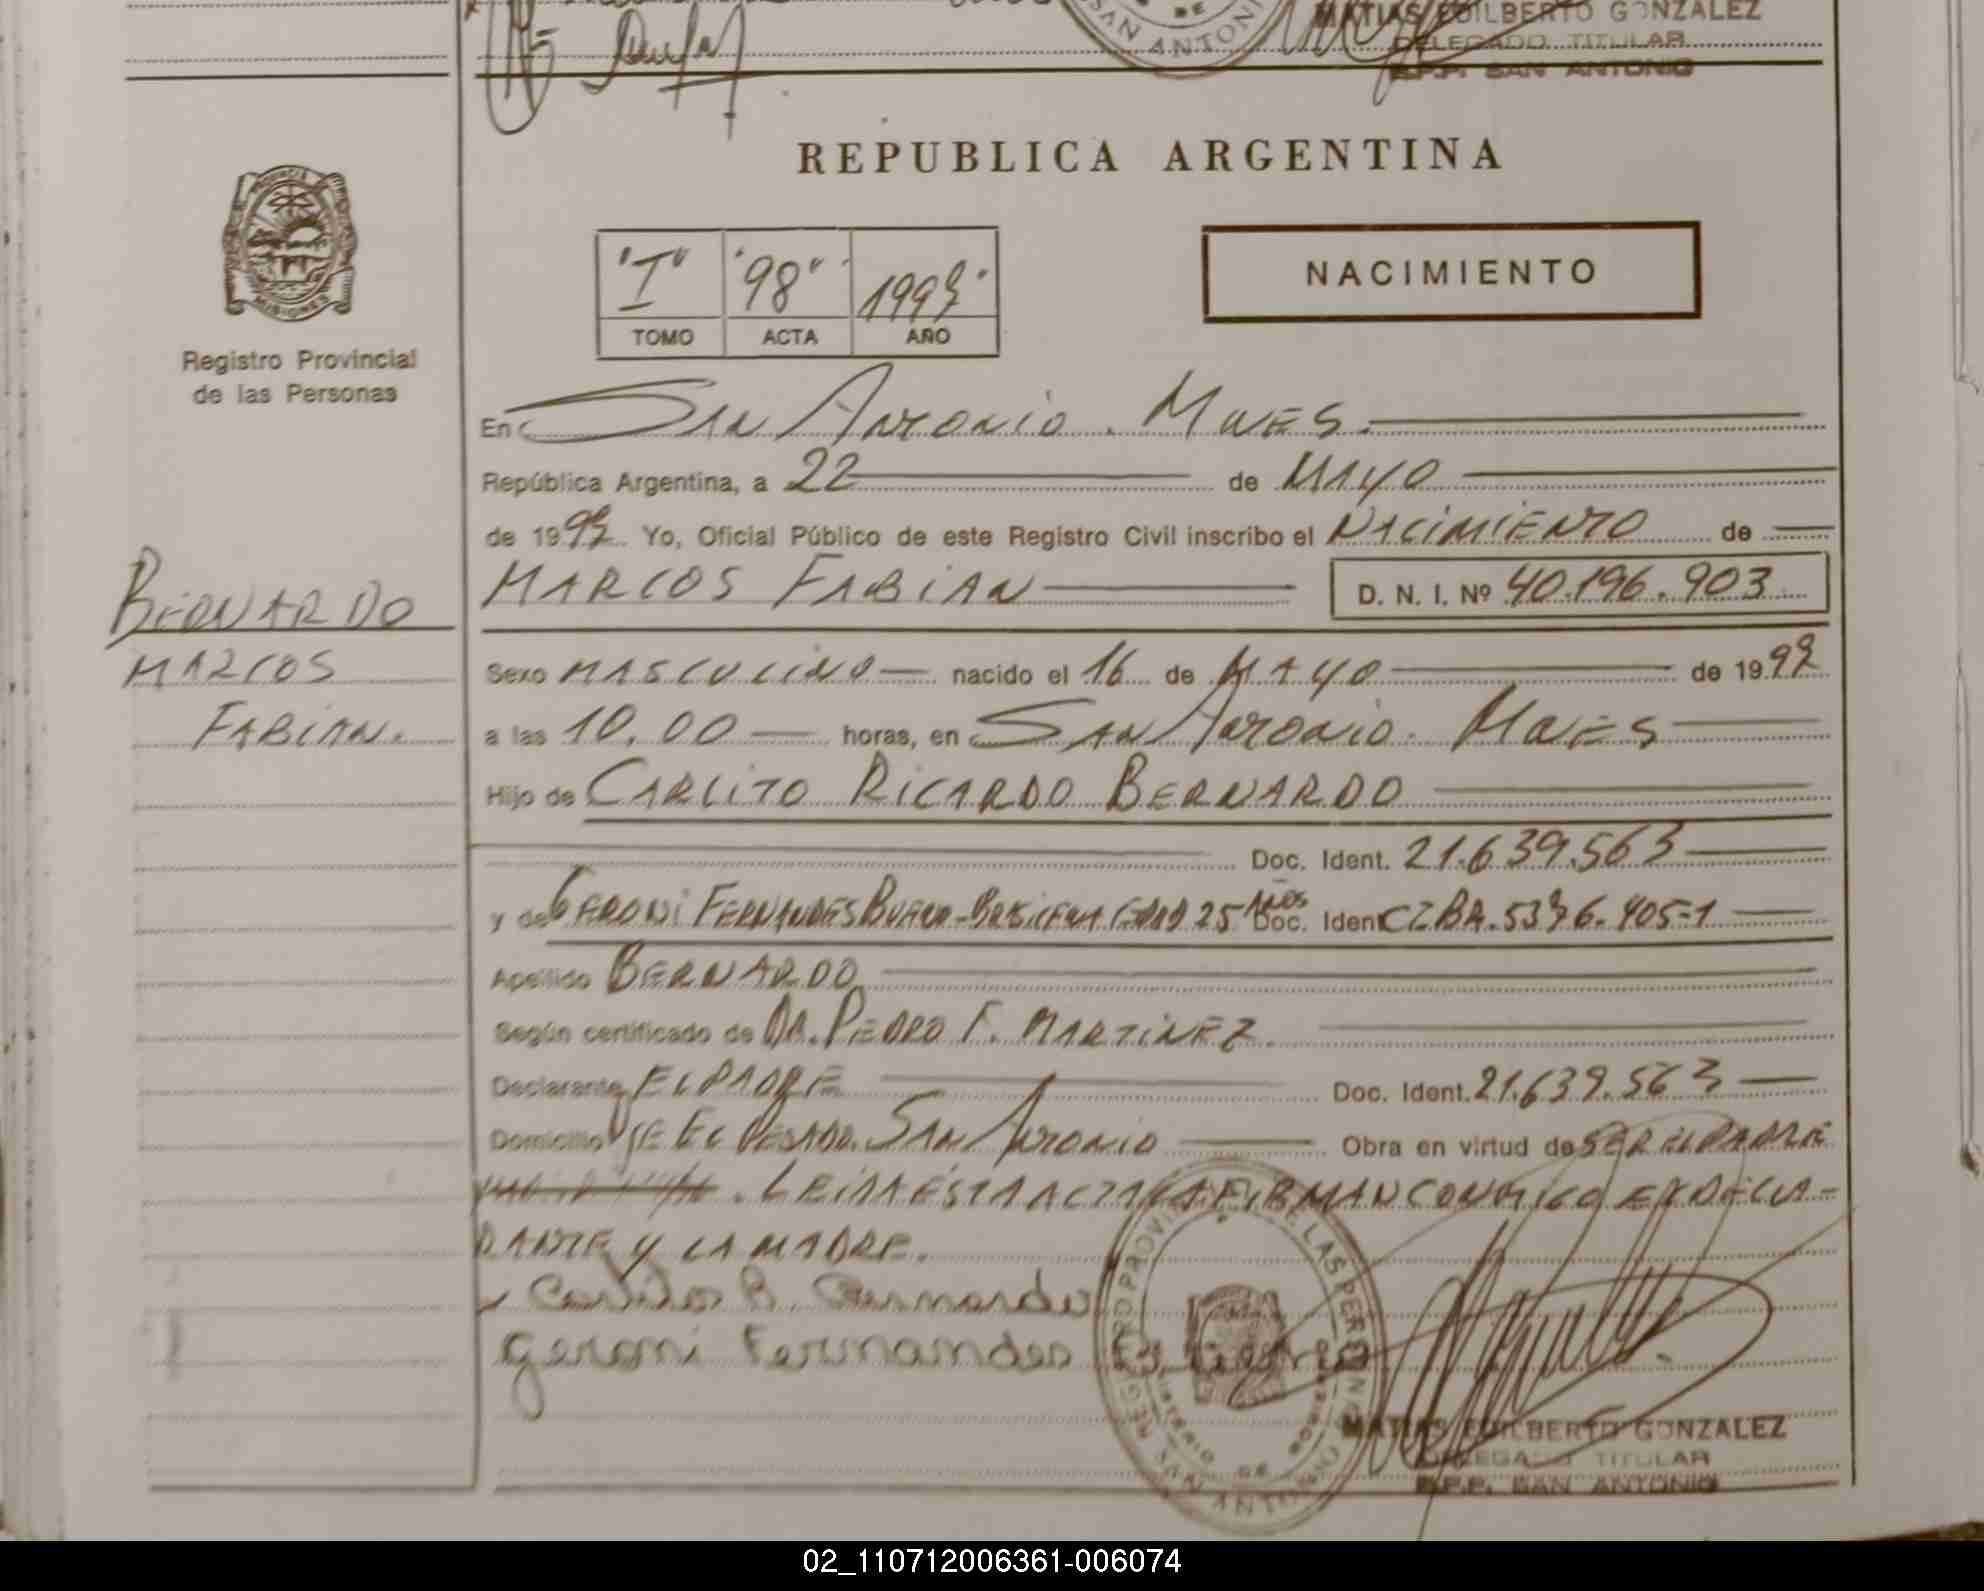 SAN ANTONIO
DE
MATIAS EDILBERTO GONZALEZ
DELEGADO TITULAR
R.P.P. SAN ANTONIO
REPUBLICA ARGENTINA
PROVINCIA
MISIONES
Registro Provincial
de las Personas
"I" "98" 1997
TOMO ACTA AÑO
NACIMIENTO
En SAN ANTONIO. MNES.
República Argentina, a 22 de MAYO
de 1997 Yo, Oficial Público de este Registro Civil inscribo el NACIMIENTO de
MARCOS FABIAN D. N. I. Nº 40.196.903
BERNARDO
MARCOS
FABIAN.
Sexo MASCULINO nacido el 16 de MAYO de 1997
a las 10,00 horas, en SAN ANTONIO. MNES
Hijo de CARLITO RICARDO BERNARDO
Doc. Ident. 21.639.563
y de GERONI FERNANDES BUENO-BRASILERA EDAD 25 AÑOS Doc. Ident CZBA.5376.405-1
Apellido BERNARDO
Según certificado de DR. PEDRO F. MARTINEZ.
Declarante EL PADRE Doc. Ident. 21.639.563
Domicilio PJE EL PESADO. SAN ANTONIO Obra en virtud de SER EL PADRE
. LEIDA ESTA ACTA LA FIRMAN CONMIGO EL DECLA-
RANTE Y LA MADRE.
Carlitos R. Bernardo
geroni Fernandes Bueno
REGISTRO PROVINCIAL DE LAS PERSONAS
MINISTERIO DE GOBIERNO
SAN ANTONIO
MATIAS EDILBERTO GONZALEZ
DELEGADO TITULAR
R.P.P. SAN ANTONIO
02_110712006361-006074